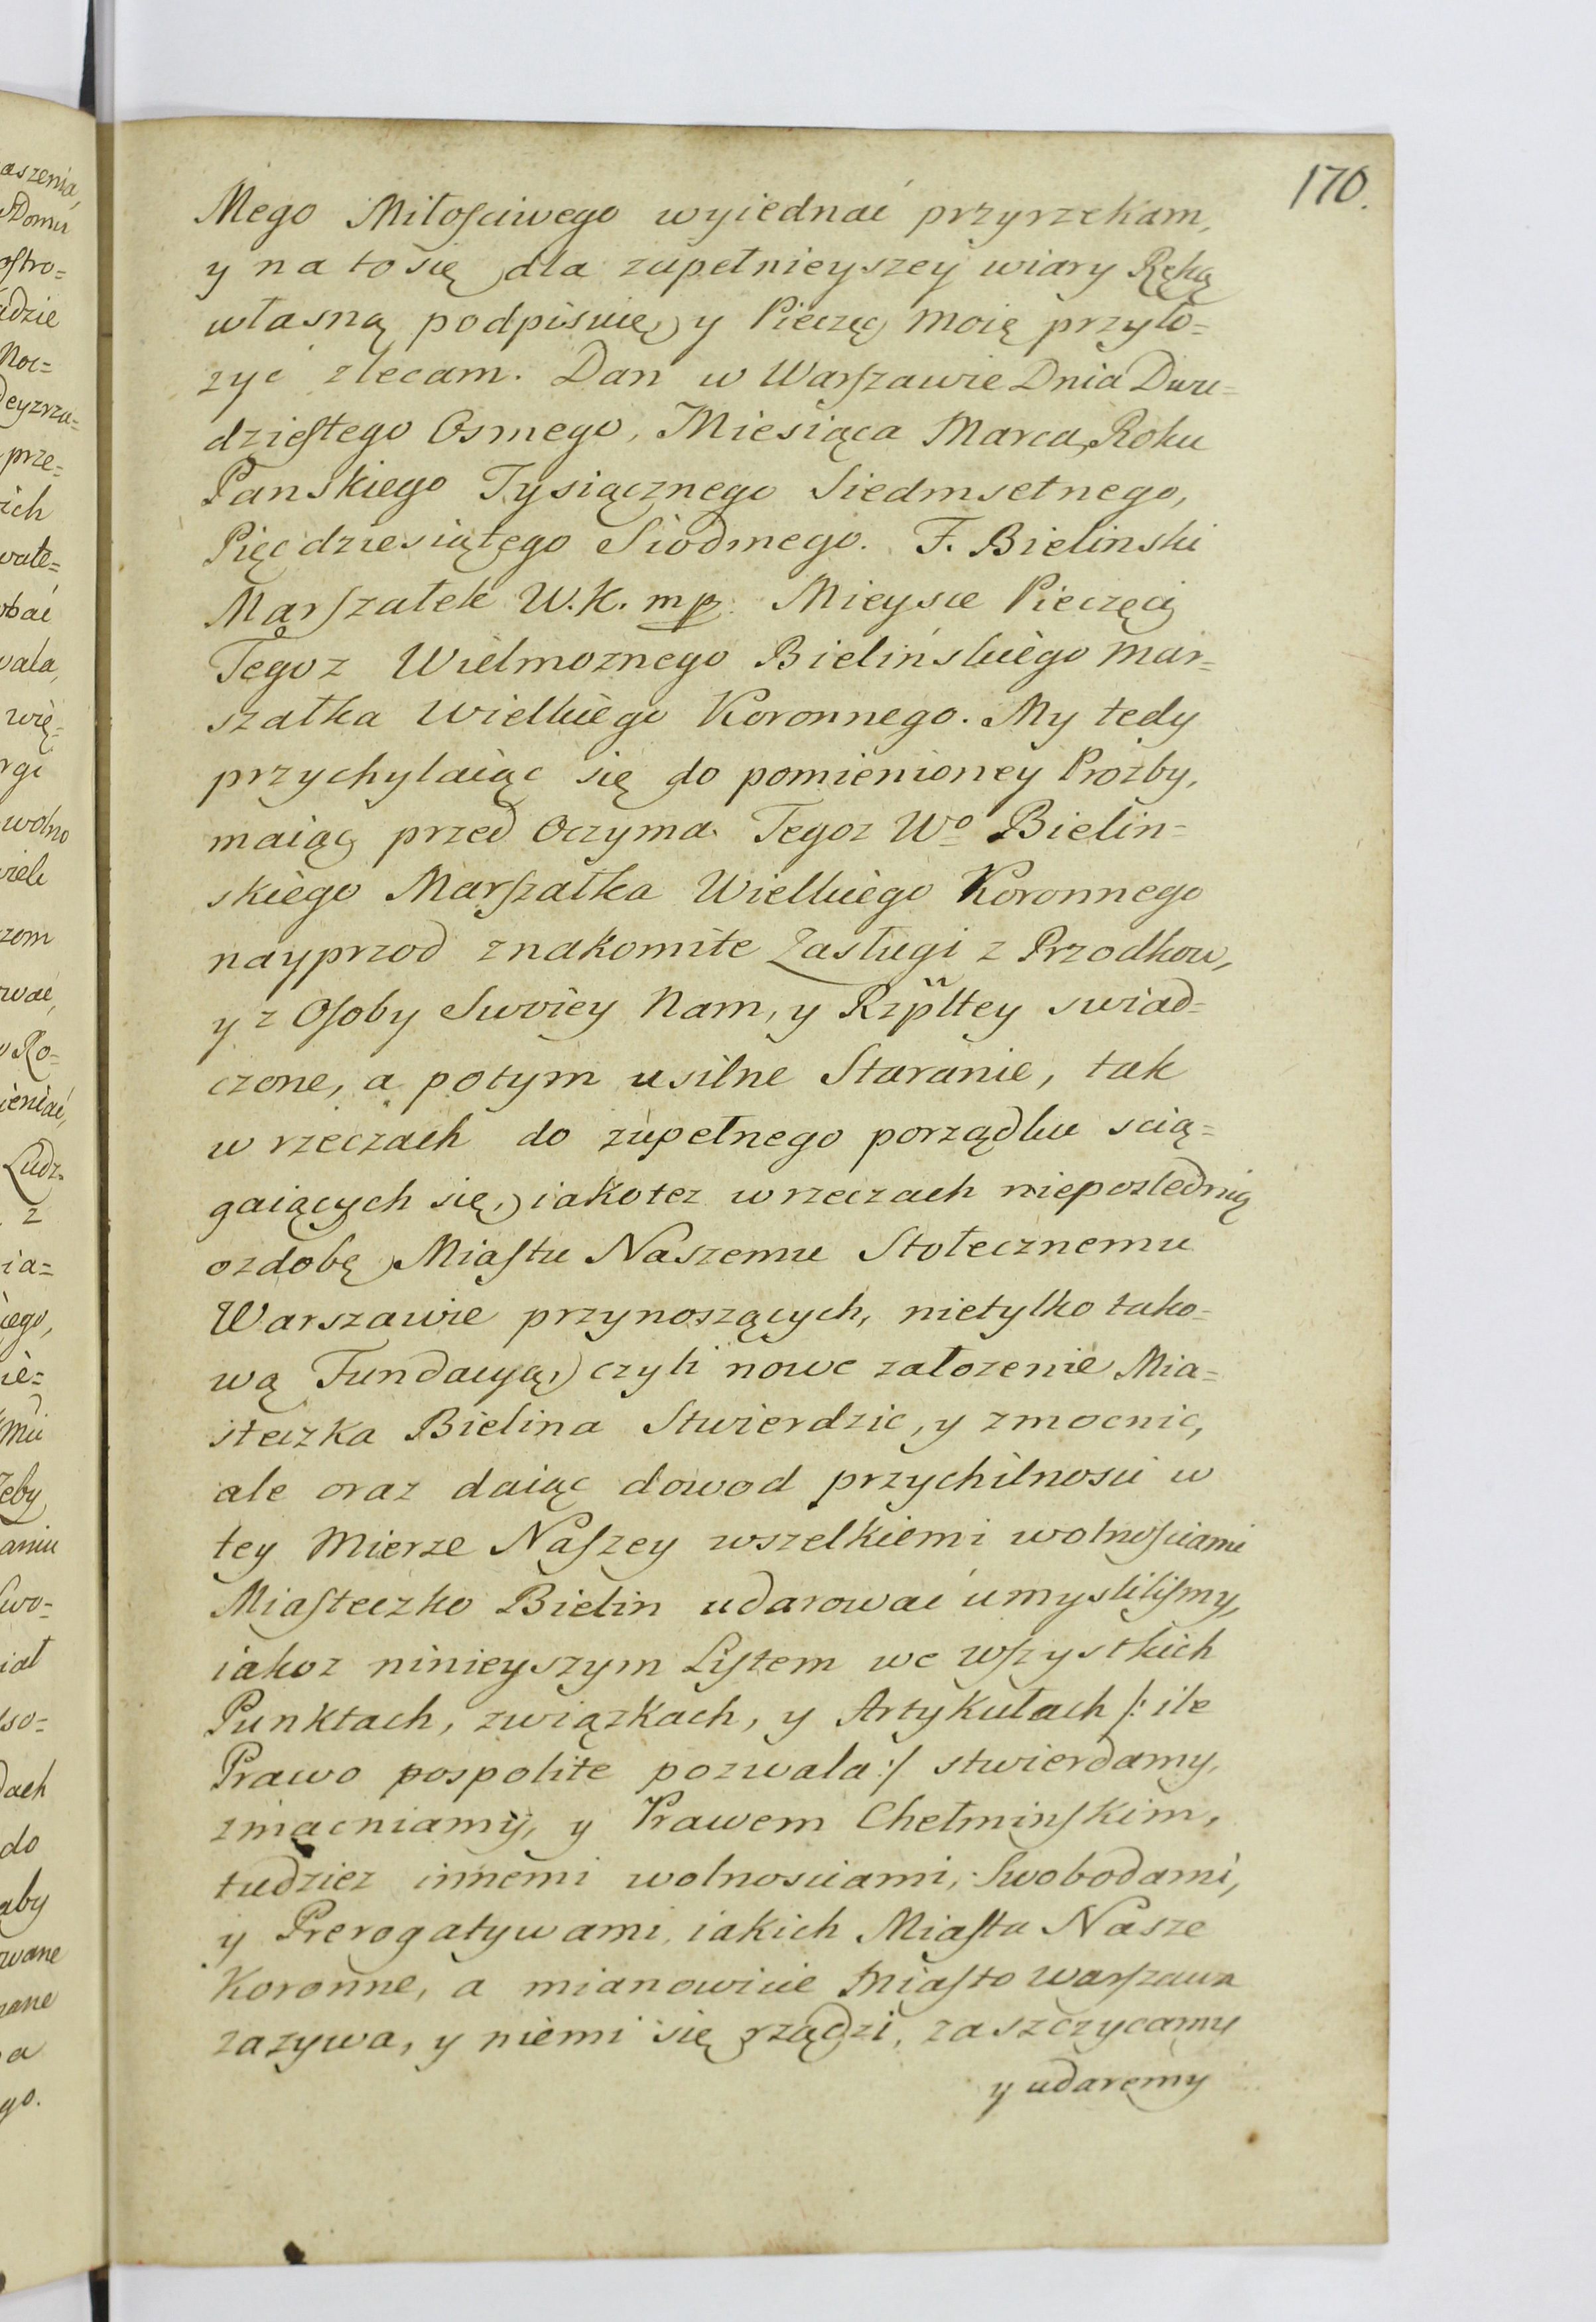 170.
Mego Miłosciwego wyiednać przyrzekam,
y na to się dla zupełnieyszey wiary Ręką
własną podpisuię, y Pieczęć Moię przyło=
zyc zlecam. Dan w Warszawie Dnia Dwu=
dziestego Osmego, Miesiąca Marca, Roku
Panskiego Tysiącznego Siedmsetnego,
Pięcdziesiątego Siodmego. F. Bielinski
Marszałek W. K. mp. Mieysce Pieczęci
Tegoz Wielmoznego Bielińskiego Mar=
szałka Wielkiego Koronnego. My tedy
przychylaiąc się do pomienioney Prozby,
maiąc przed Oczyma Tegoz Wo Bielin=
skiego Marszałka Wielkiego Koronnego
nayprzod znakomite Zasługi z Przodkow,
y z Osoby Swoiey Nam, y Rzpltey swiad=
czone, a potym usilne Staranie, tak
w rzeczach do zupełnego porządku scią=
gaiących się, iakotez w rzeczach nieposlednią
ozdobę Miastu Naszemu Stołecznemu
Warszawie przynoszących, nietylko tako=
wą Fundacyą, czyli nowe załozenie Mia=
steczka Bielina Stwierdzic, y zmocnic,
ale oraz daiąc dowod przychilnosci w
tey Mierze Naszey wszelkiemi wolnosciami
Miasteczko Bielin udarować umyslilismy,
iakoz ninieyszym Listem we wszystkich
Punktach, związkach, y Artykułach /: ile
Prawo pospolite pozwala :/ stwierdamy,
zmacniamy, y Prawem Chełminskim,
tudziez innemi wolnosciami, Swobodami,
y Prerogatywami, iakich Miasta Nasze
Koronne, a mianowicie Miasto Warszawa
zazywa, y niemi się rządzi, zaszczycamy
y udaremy